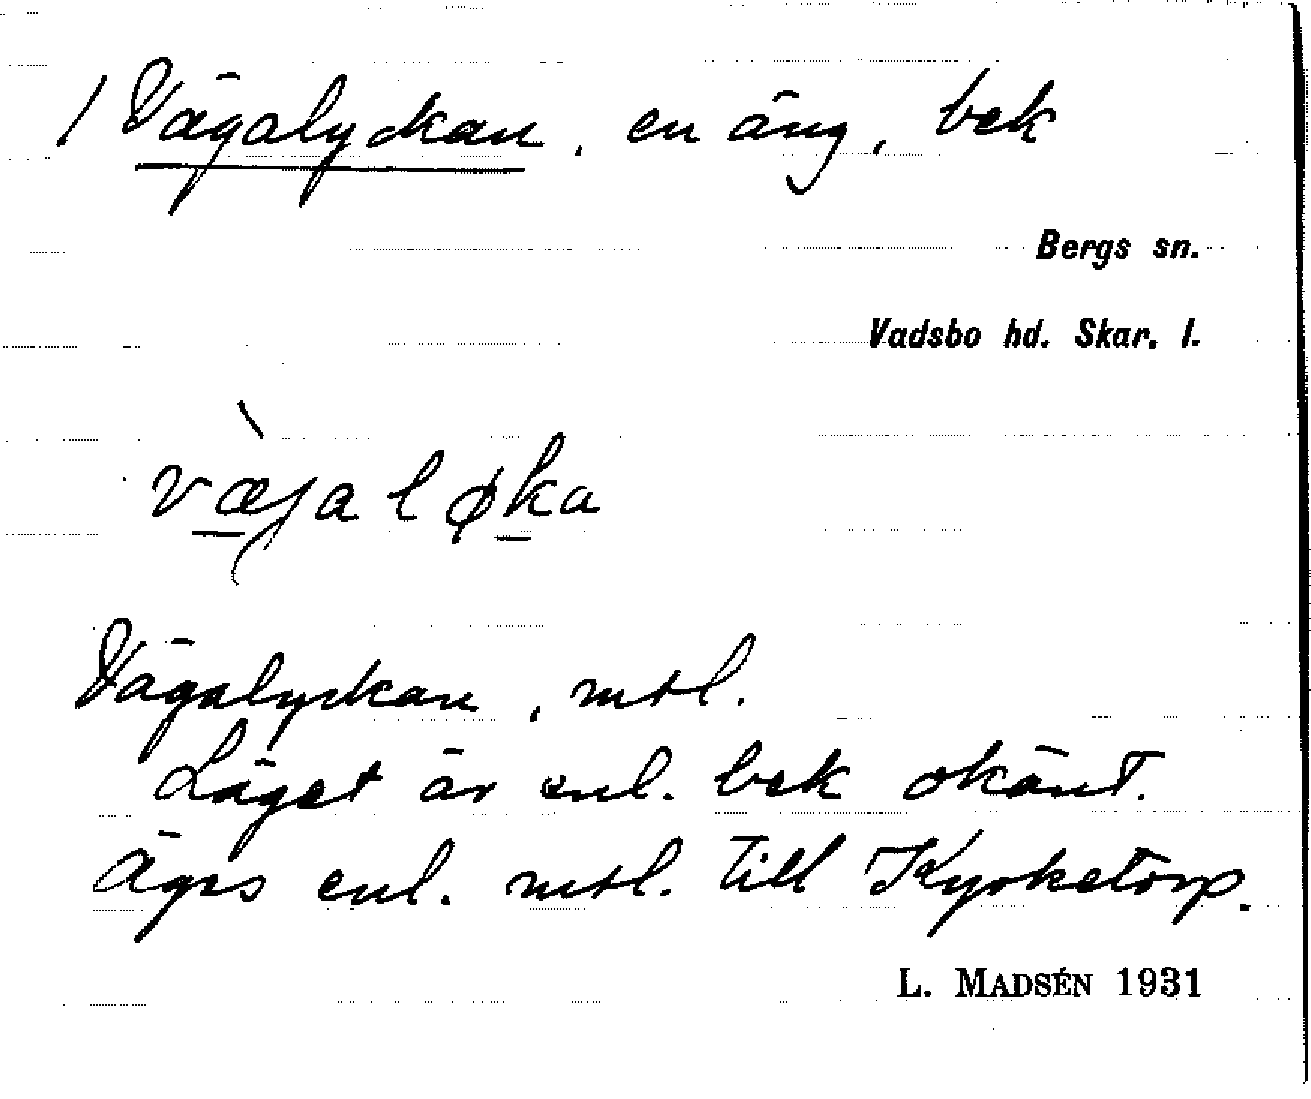 / Vägalyckan, en äng, bek
Bergs sn.
Vadsbo hd. Skar. l.
væjaløka
Vägalyckan, mtl.
Läget är enl. bek okänt.
Äges enl. mtl. till Kyrketorp.
L. MADSÉN 1931